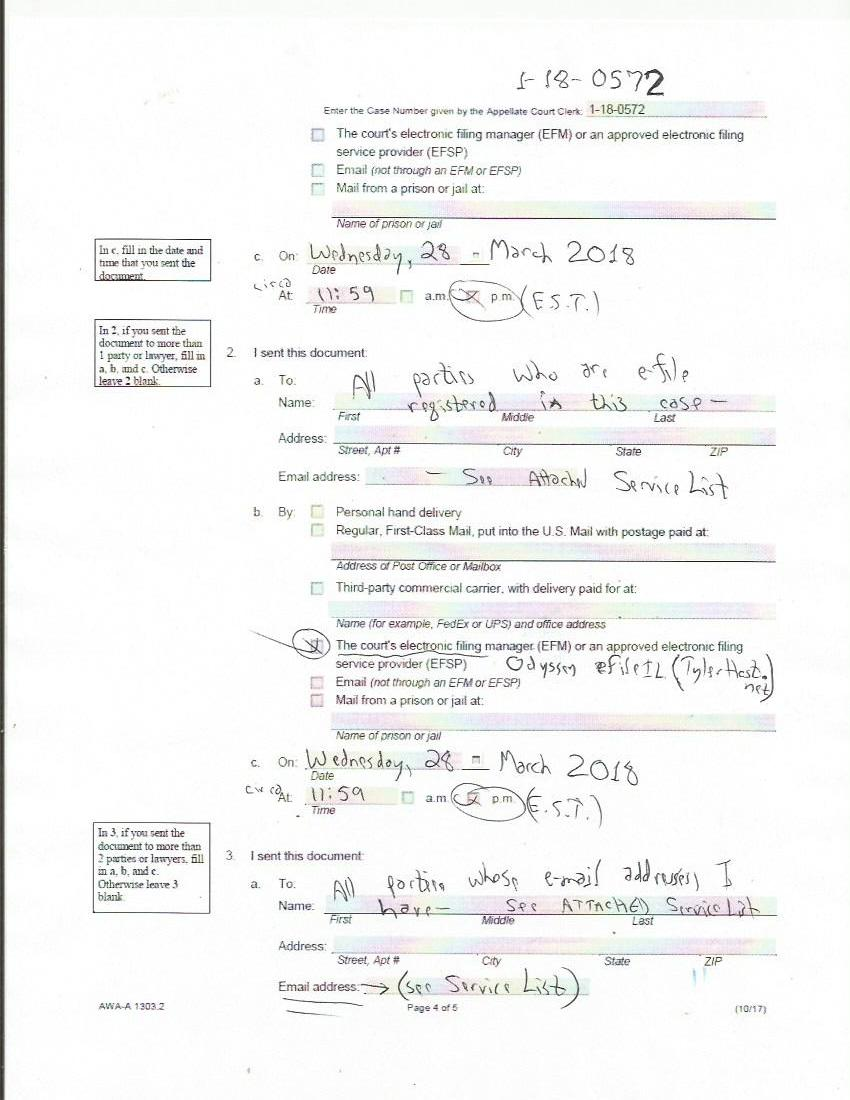 1-18-0572
Enter the Case Number given by the Appellate Court Clerk: 1-18-0572
The court's electronic filing manager (EFM) or an approved electronic filing
service provider (EFSP)
Email (not through an EFM or EFSP)
Mail from a prison or jail at:
Name of prison or jail
In c, fill in the date and
time that you sent the
document.
c. On: Wednesday, 28 - March 2018
Date
circa
At: 11:59 a.m. p.m. (E.S.T.)
Time
In 2, if you sent the
document to more than
1 party or lawyer, fill in
a, b, and c. Otherwise
leave 2 blank.
2. I sent this document:
a. To: All parties who are e-file
Name: registered in this case -
First Middle Last
Address:
Street, Apt # City State ZIP
Email address: - See Attached Service List
b. By: Personal hand delivery
Regular, First-Class Mail, put into the U.S. Mail with postage paid at:
Address of Post Office or Mailbox
Third-party commercial carrier, with delivery paid for at:
Name (for example, FedEx or UPS) and office address
The court's electronic filing manager (EFM) or an approved electronic filing
service provider (EFSP) Odyssey eFileIL (TylerHost.
net)
Email (not through an EFM or EFSP)
Mail from a prison or jail at:
Name of prison or jail
c. On: Wednesday, 28 - March 2018
Date
circa
At: 11:59 a.m. p.m. (E.S.T.)
Time
In 3, if you sent the
document to more than
2 parties or lawyers, fill
in a, b, and c.
Otherwise leave 3
blank.
3. I sent this document:
a. To: All parties whose e-mail addresses I
Name: have - See ATTACHED Service List
First Middle Last
Address:
Street, Apt # City State ZIP
Email address: → (see Service List)
AWA-A 1303.2 Page 4 of 5 (10/17)